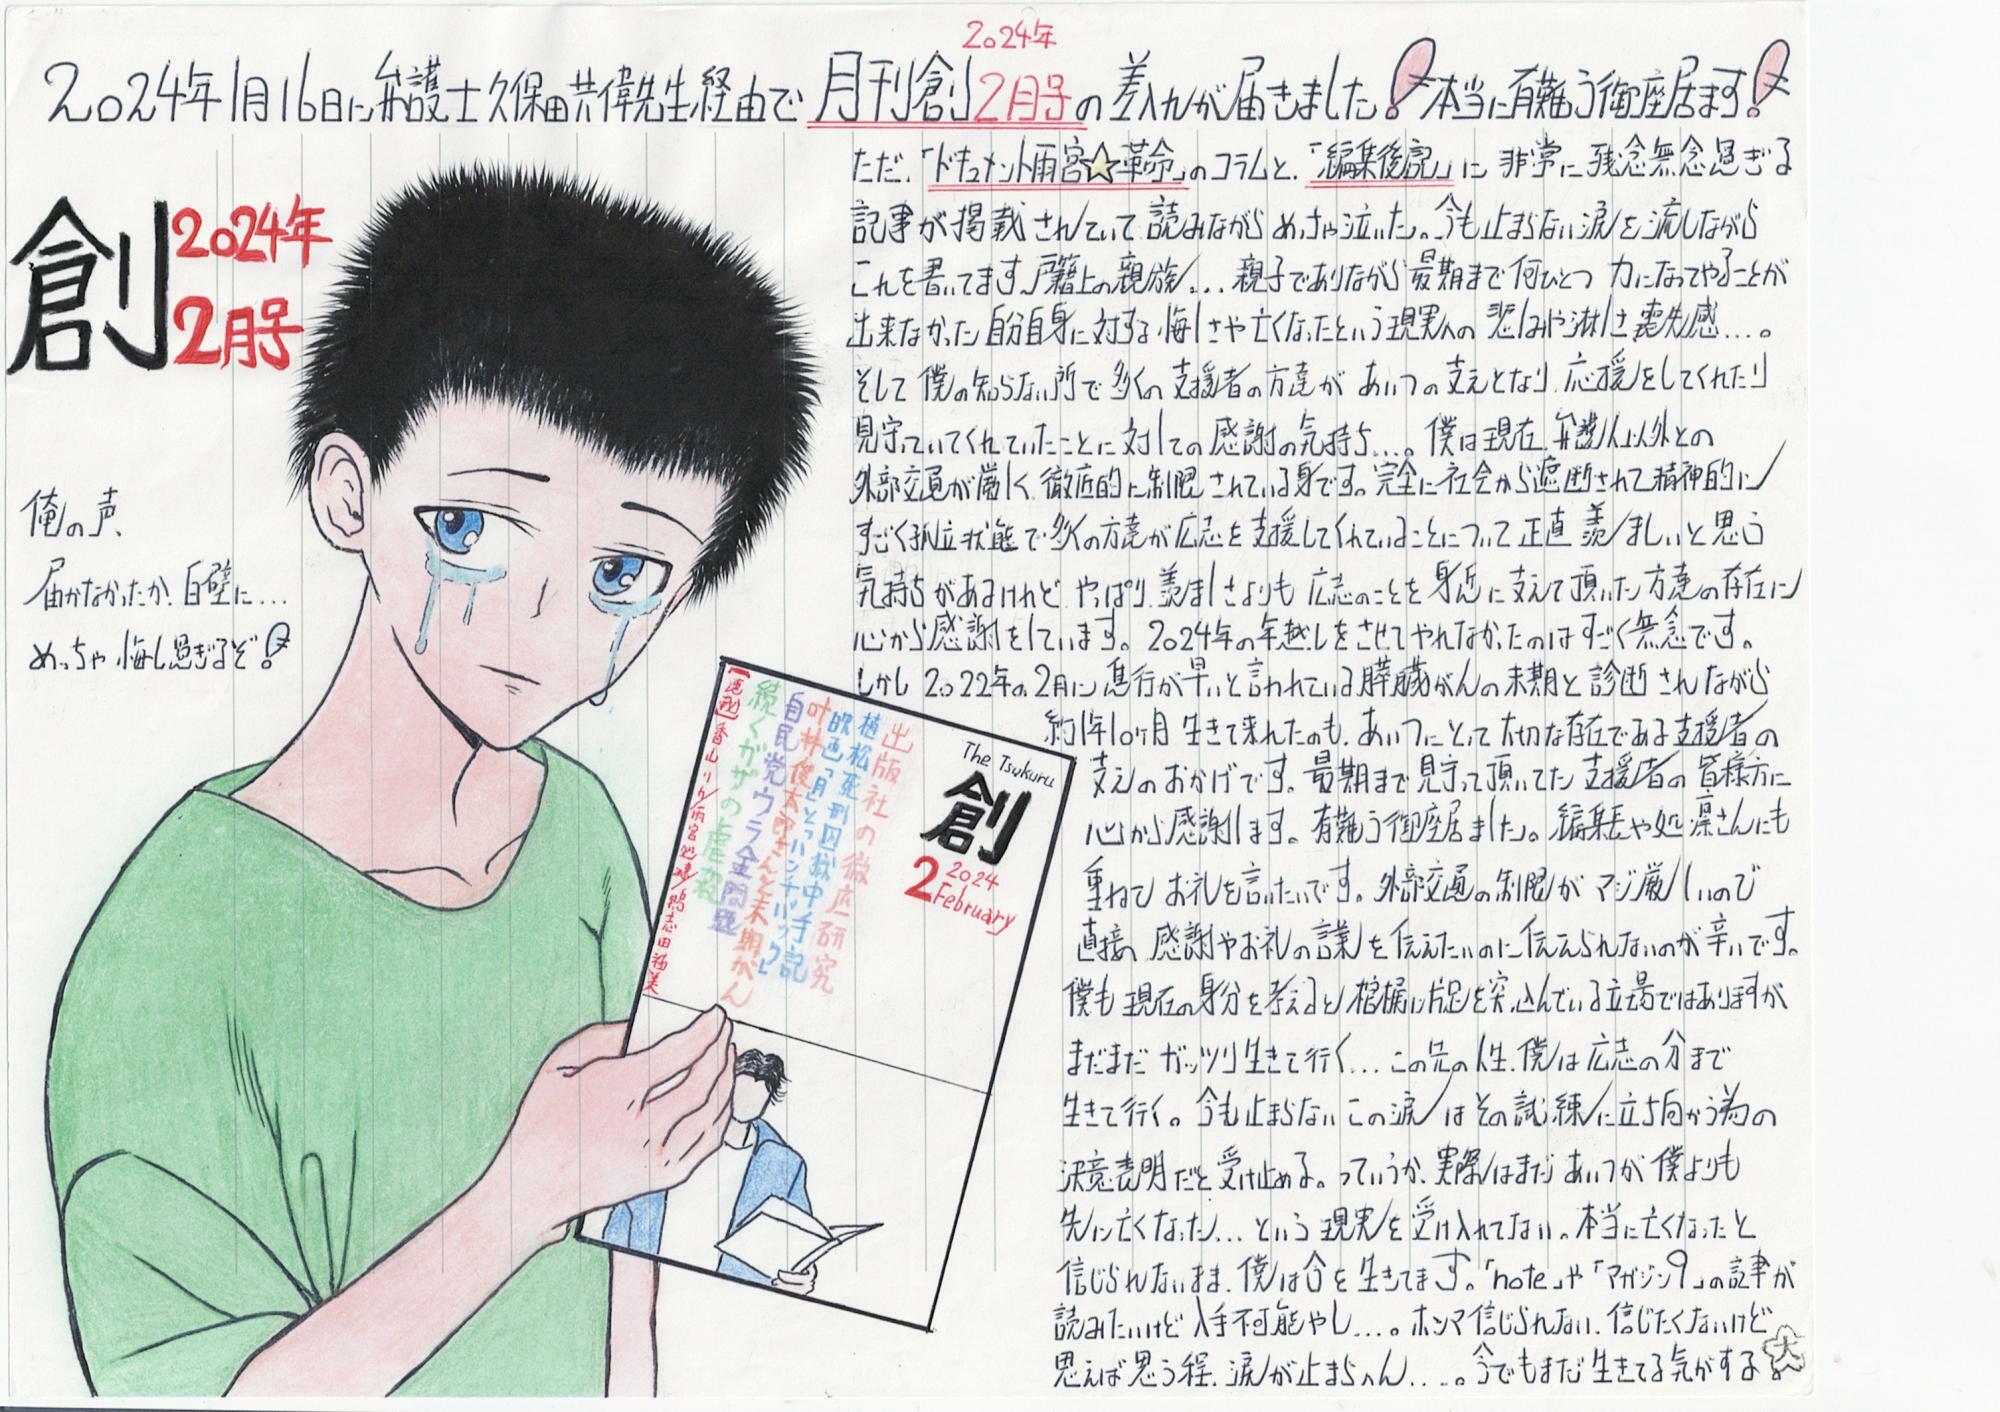 2024年
2024年1月16日に弁護士久保田共偉先生経由で月刊創2月号の差入れが届きました!本当に有難う御座居ます!
創 2024年
2月号
俺の声、
届かなかったか、白壁に…
めっちゃ悔し過ぎるぞ!
ただ、「ドキュメント雨宮☆革命」のコラムと、「編集後記」に非常に残念無念過ぎる
記事が掲載されていて読みながらめっちゃ泣いた。今も止まらない涙を流しながら
これを書いてます。戸籍上の親族…親子でありながら最期まで何ひとつ力になってやることが
出来なかった自分自身に対する悔しさや亡くなったという現実への悲しみや淋しさ喪失感…。
そして僕の知らない所で多くの支援者の方達があいつの支えとなり、応援をしてくれたり
見守っていてくれていたことに対しての感謝の気持ち…。僕は現在、弁護人以外との
外部交通が厳しく徹底的に制限されている身です。完全に社会から遮断されて精神的に
すごく孤立状態で多くの方達が広志を支援してくれていることについて正直羨ましいと思う
気持ちがあるけれど、やっぱり羨ましさよりも広志のことを身近に支えて頂いた方達の存在に
心から感謝をしています。2024年の年越しをさせてやれなかったのはすごく無念です。
しかし2022年の2月に進行が早いと言われている膵臓がんの末期と診断されながら
約1年10ヶ月生きて来れたのも、あいつにとって大切な存在である支援者の
支えのおかげです。最期まで見守って頂いてた支援者の皆様方に
心から感謝します。有難う御座居ました。編集長や処凛さんにも
重ねてお礼を言いたいです。外部交通の制限がマジ厳しいので
直接、感謝やお礼の言葉を伝えたいのに伝えられないのが辛いです。
僕も現在の身分を考えると棺桶に片足を突っ込んでいる立場ではありますが
まだまだガッツリ生きて行く…この先の人生、僕は広志の分まで
生きて行く。今も止まらないこの涙はその試練に立ち向かう為の
決意表明だと受け止める。っていうか、実際はまだあいつが僕よりも
先に亡くなった…という現実を受け入れてない。本当に亡くなったと
信じられないまま、僕は今を生きてます。「note」や「マガジン9」の記事が
読みたいけど入手不可能やし…。ホンマ信じられない、信じたくないけど
思えば思う程、涙が止まらへん…。今でもまだ生きてる気がする。
大
The Tsukuru
創
2 2024
February
出版社の徹底研究
植松死刑囚獄中手記
映画「月」とハンチバック
叶井俊太郎さんと末期がん
自民党ウラ金問題
続くガザの虐殺
【連載】香山リカ/雨宮処凛/鴨志田祐美